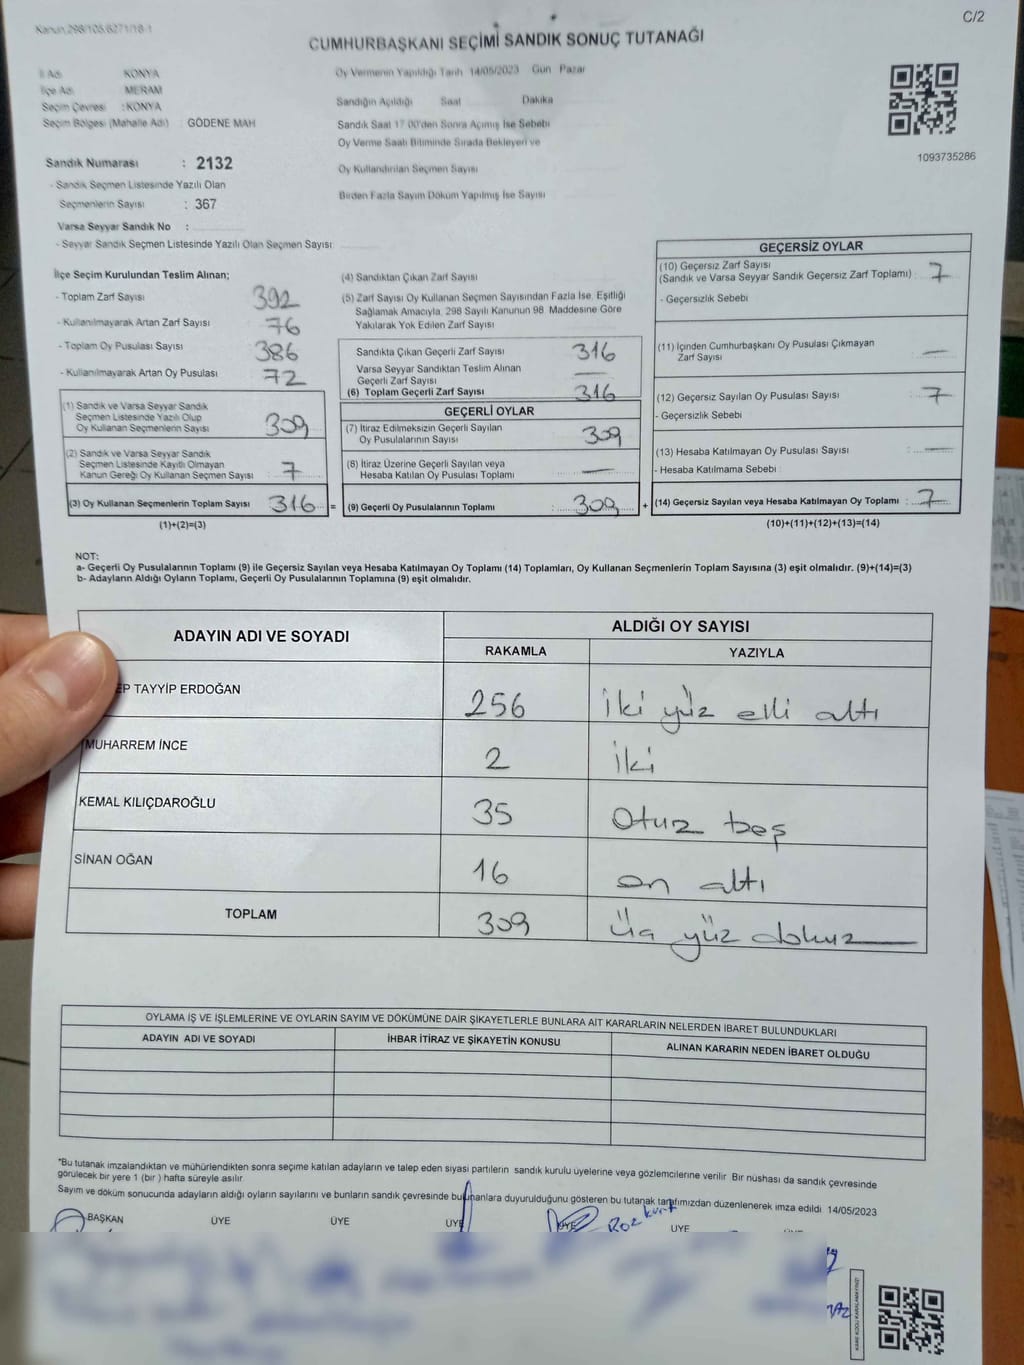 Kanun.298/105,6271/18-1
C/2
CUMHURBAŞKANI SEÇİMİ SANDIK SONUÇ TUTANAĞI
İl Adı KONYA
İlçe Adı MERAM
Seçim Çevresi : KONYA
Seçim Bölgesi (Mahalle Adı) : GÖDENE MAH
Oy Vermenin Yapıldığı Tarih 14/05/2023 Gün Pazar
Sandığın Açıldığı Saat Dakika
Sandık Saat 17.00'den Sonra Açılmış İse Sebebi
Oy Verme Saati Bitiminde Sırada Bekleyen ve
Oy Kullandırılan Seçmen Sayısı
Birden Fazla Sayım Döküm Yapılmış İse Sayısı
1093735286
Sandık Numarası : 2132
- Sandık Seçmen Listesinde Yazılı Olan
Seçmenlerin Sayısı : 367
Varsa Seyyar Sandık No :
- Seyyar Sandık Seçmen Listesinde Yazılı Olan Seçmen Sayısı
İlçe Seçim Kurulundan Teslim Alınan;
- Toplam Zarf Sayısı 392
- Kullanılmayarak Artan Zarf Sayısı 76
- Toplam Oy Pusulası Sayısı 386
- Kullanılmayarak Artan Oy Pusulası 72
(1) Sandık ve Varsa Seyyar Sandık
Seçmen Listesinde Yazılı Olup
Oy Kullanan Seçmenlerin Sayısı 309
(2) Sandık ve Varsa Seyyar Sandık
Seçmen Listesinde Kayıtlı Olmayan
Kanun Gereği Oy Kullanan Seçmen Sayısı 7
(3) Oy Kullanan Seçmenlerin Toplam Sayısı 316 =
(1)+(2)=(3)
(4) Sandıktan Çıkan Zarf Sayısı
(5) Zarf Sayısı Oy Kullanan Seçmen Sayısından Fazla İse, Eşitliği
Sağlamak Amacıyla, 298 Sayılı Kanunun 98. Maddesine Göre
Yakılarak Yok Edilen Zarf Sayısı
Sandıkta Çıkan Geçerli Zarf Sayısı 316
Varsa Seyyar Sandıktan Teslim Alınan
Geçerli Zarf Sayısı —
(6) Toplam Geçerli Zarf Sayısı 316
GEÇERLİ OYLAR
(7) İtiraz Edilmeksizin Geçerli Sayılan
Oy Pusulalarının Sayısı 309
(8) İtiraz Üzerine Geçerli Sayılan veya
Hesaba Katılan Oy Pusulası Toplamı —
(9) Geçerli Oy Pusulalarının Toplamı : 309 +
GEÇERSİZ OYLAR
(10) Geçersiz Zarf Sayısı
(Sandık ve Varsa Seyyar Sandık Geçersiz Zarf Toplamı) : 7
- Geçersizlik Sebebi
(11) İçinden Cumhurbaşkanı Oy Pusulası Çıkmayan
Zarf Sayısı —
(12) Geçersiz Sayılan Oy Pusulası Sayısı : 7
- Geçersizlik Sebebi
(13) Hesaba Katılmayan Oy Pusulası Sayısı : —
- Hesaba Katılmama Sebebi
(14) Geçersiz Sayılan veya Hesaba Katılmayan Oy Toplamı : 7
(10)+(11)+(12)+(13)=(14)
NOT:
a- Geçerli Oy Pusulalarının Toplamı (9) ile Geçersiz Sayılan veya Hesaba Katılmayan Oy Toplamı (14) Toplamları, Oy Kullanan Seçmenlerin Toplam Sayısına (3) eşit olmalıdır. (9)+(14)=(3)
b- Adayların Aldığı Oyların Toplamı, Geçerli Oy Pusulalarının Toplamına (9) eşit olmalıdır.
ADAYIN ADI VE SOYADI ALDIĞI OY SAYISI
RAKAMLA YAZIYLA
EP TAYYİP ERDOĞAN 256 İki yüz elli altı
MUHARREM İNCE 2 İki
KEMAL KILIÇDAROĞLU 35 Otuz beş
SİNAN OĞAN 16 on altı
TOPLAM 309 Üç yüz dokuz
OYLAMA İŞ VE İŞLEMLERİNE VE OYLARIN SAYIM VE DÖKÜMÜNE DAİR ŞİKAYETLERLE BUNLARA AİT KARARLARIN NELERDEN İBARET BULUNDUKLARI
ADAYIN ADI VE SOYADI İHBAR İTİRAZ VE ŞİKAYETİN KONUSU ALINAN KARARIN NEDEN İBARET OLDUĞU
*Bu tutanak imzalandıktan ve mühürlendikten sonra seçime katılan adayların ve talep eden siyasi partilerin sandık kurulu üyelerine veya gözlemcilerine verilir. Bir nüshası da sandık çevresinde
görülecek bir yere 1 (bir) hafta süreyle asılır.
Sayım ve döküm sonucunda adayların aldığı oyların sayılarını ve bunların sandık çevresinde bulunanlara duyurulduğunu gösteren bu tutanak tarafımızdan düzenlenerek imza edildi 14/05/2023
BAŞKAN ÜYE ÜYE ÜYE ÜYE Bozkurt ÜYE